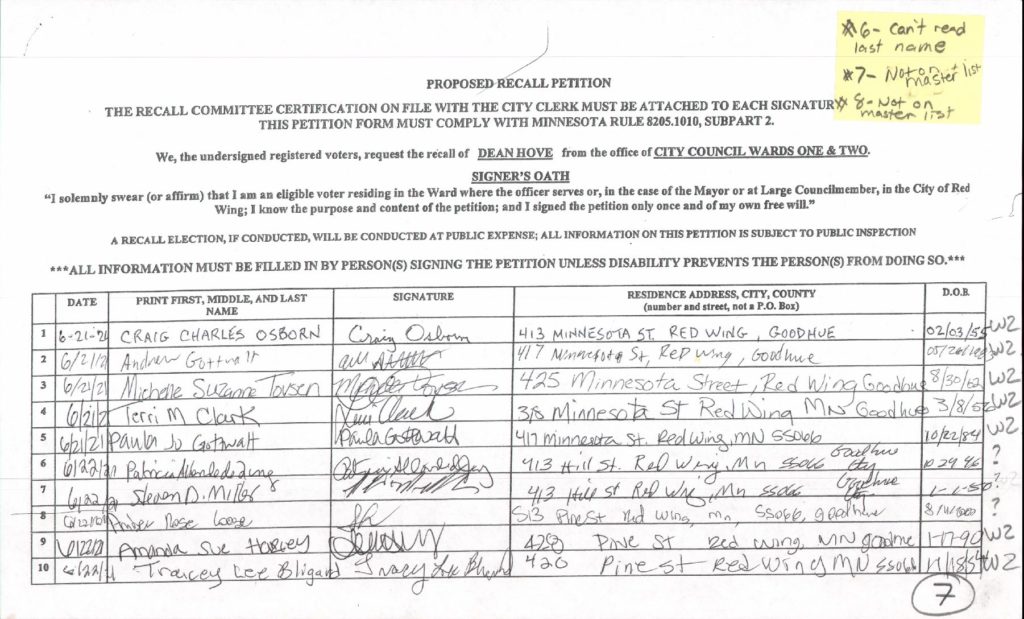 #6- Can't read
last name
#7- Not on
master list
# 8- Not on
master list
PROPOSED RECALL PETITION
THE RECALL COMMITTEE CERTIFICATION ON FILE WITH THE CITY CLERK MUST BE ATTACHED TO EACH SIGNATUR
THIS PETITION FORM MUST COMPLY WITH MINNESOTA RULE 8205.1010, SUBPART 2.
We, the undersigned registered voters, request the recall of DEAN HOVE from the office of CITY COUNCIL WARDS ONE & TWO.
SIGNER'S OATH
“I solemnly swear (or affirm) that I am an eligible voter residing in the Ward where the officer serves or, in the case of the Mayor or at Large Councilmember, in the City of Red
Wing; I know the purpose and content of the petition; and I signed the petition only once and of my own free will.”
A RECALL ELECTION, IF CONDUCTED, WILL BE CONDUCTED AT PUBLIC EXPENSE; ALL INFORMATION ON THIS PETITION IS SUBJECT TO PUBLIC INSPECTION
***ALL INFORMATION MUST BE FILLED IN BY PERSON(S) SIGNING THE PETITION UNLESS DISABILITY PREVENTS THE PERSON(S) FROM DOING SO.***
DATE PRINT FIRST, MIDDLE, AND LAST NAME SIGNATURE RESIDENCE ADDRESS, CITY, COUNTY (number and street, not a P.O. Box) D.O.B.
1 6-21-21 CRAIG CHARLES OSBORN Craig Osborn 413 MINNESOTA ST. RED WING, GOODHUE 02/03/55 W2
2 6/21/21 Andrew Gottwalt 417 Minnesota St, Red Wing, Goodhue W2
3 6/21/21 Michelle Suzanne 425 Minnesota Street, Red Wing Goodhue 8/30/62 W2
4 6/21/21 Terri M Clark Terri Clark 318 Minnesota St Red Wing MN Goodhue 3/8/52 W2
5 6/21/21 Paula Jo Gottwalt Paula Gottwalt 417 Minnesota St. Red Wing, MN 55066 10/22/84 W2
6 6/22/21 Patricia 413 Hill St. Red Wing, Mn 55066 Goodhue 10 29 46 ?
7 6/22/21 Steven D. Miller 413 Hill St Red Wing, Mn 55066 Goodhue 1-1-50 ?
8 6/22/21 Amber Rose 513 Pine St red wing, mn, 55066, goodhue ?
9 6/22/21 Amanda Sue Harvey 420 Pine St Red Wing, MN goodhue 1-17-90 W2
10 6/22/21 Traicey Lee Bligard 420 Pine St Red Wing MN 55066 W2
7